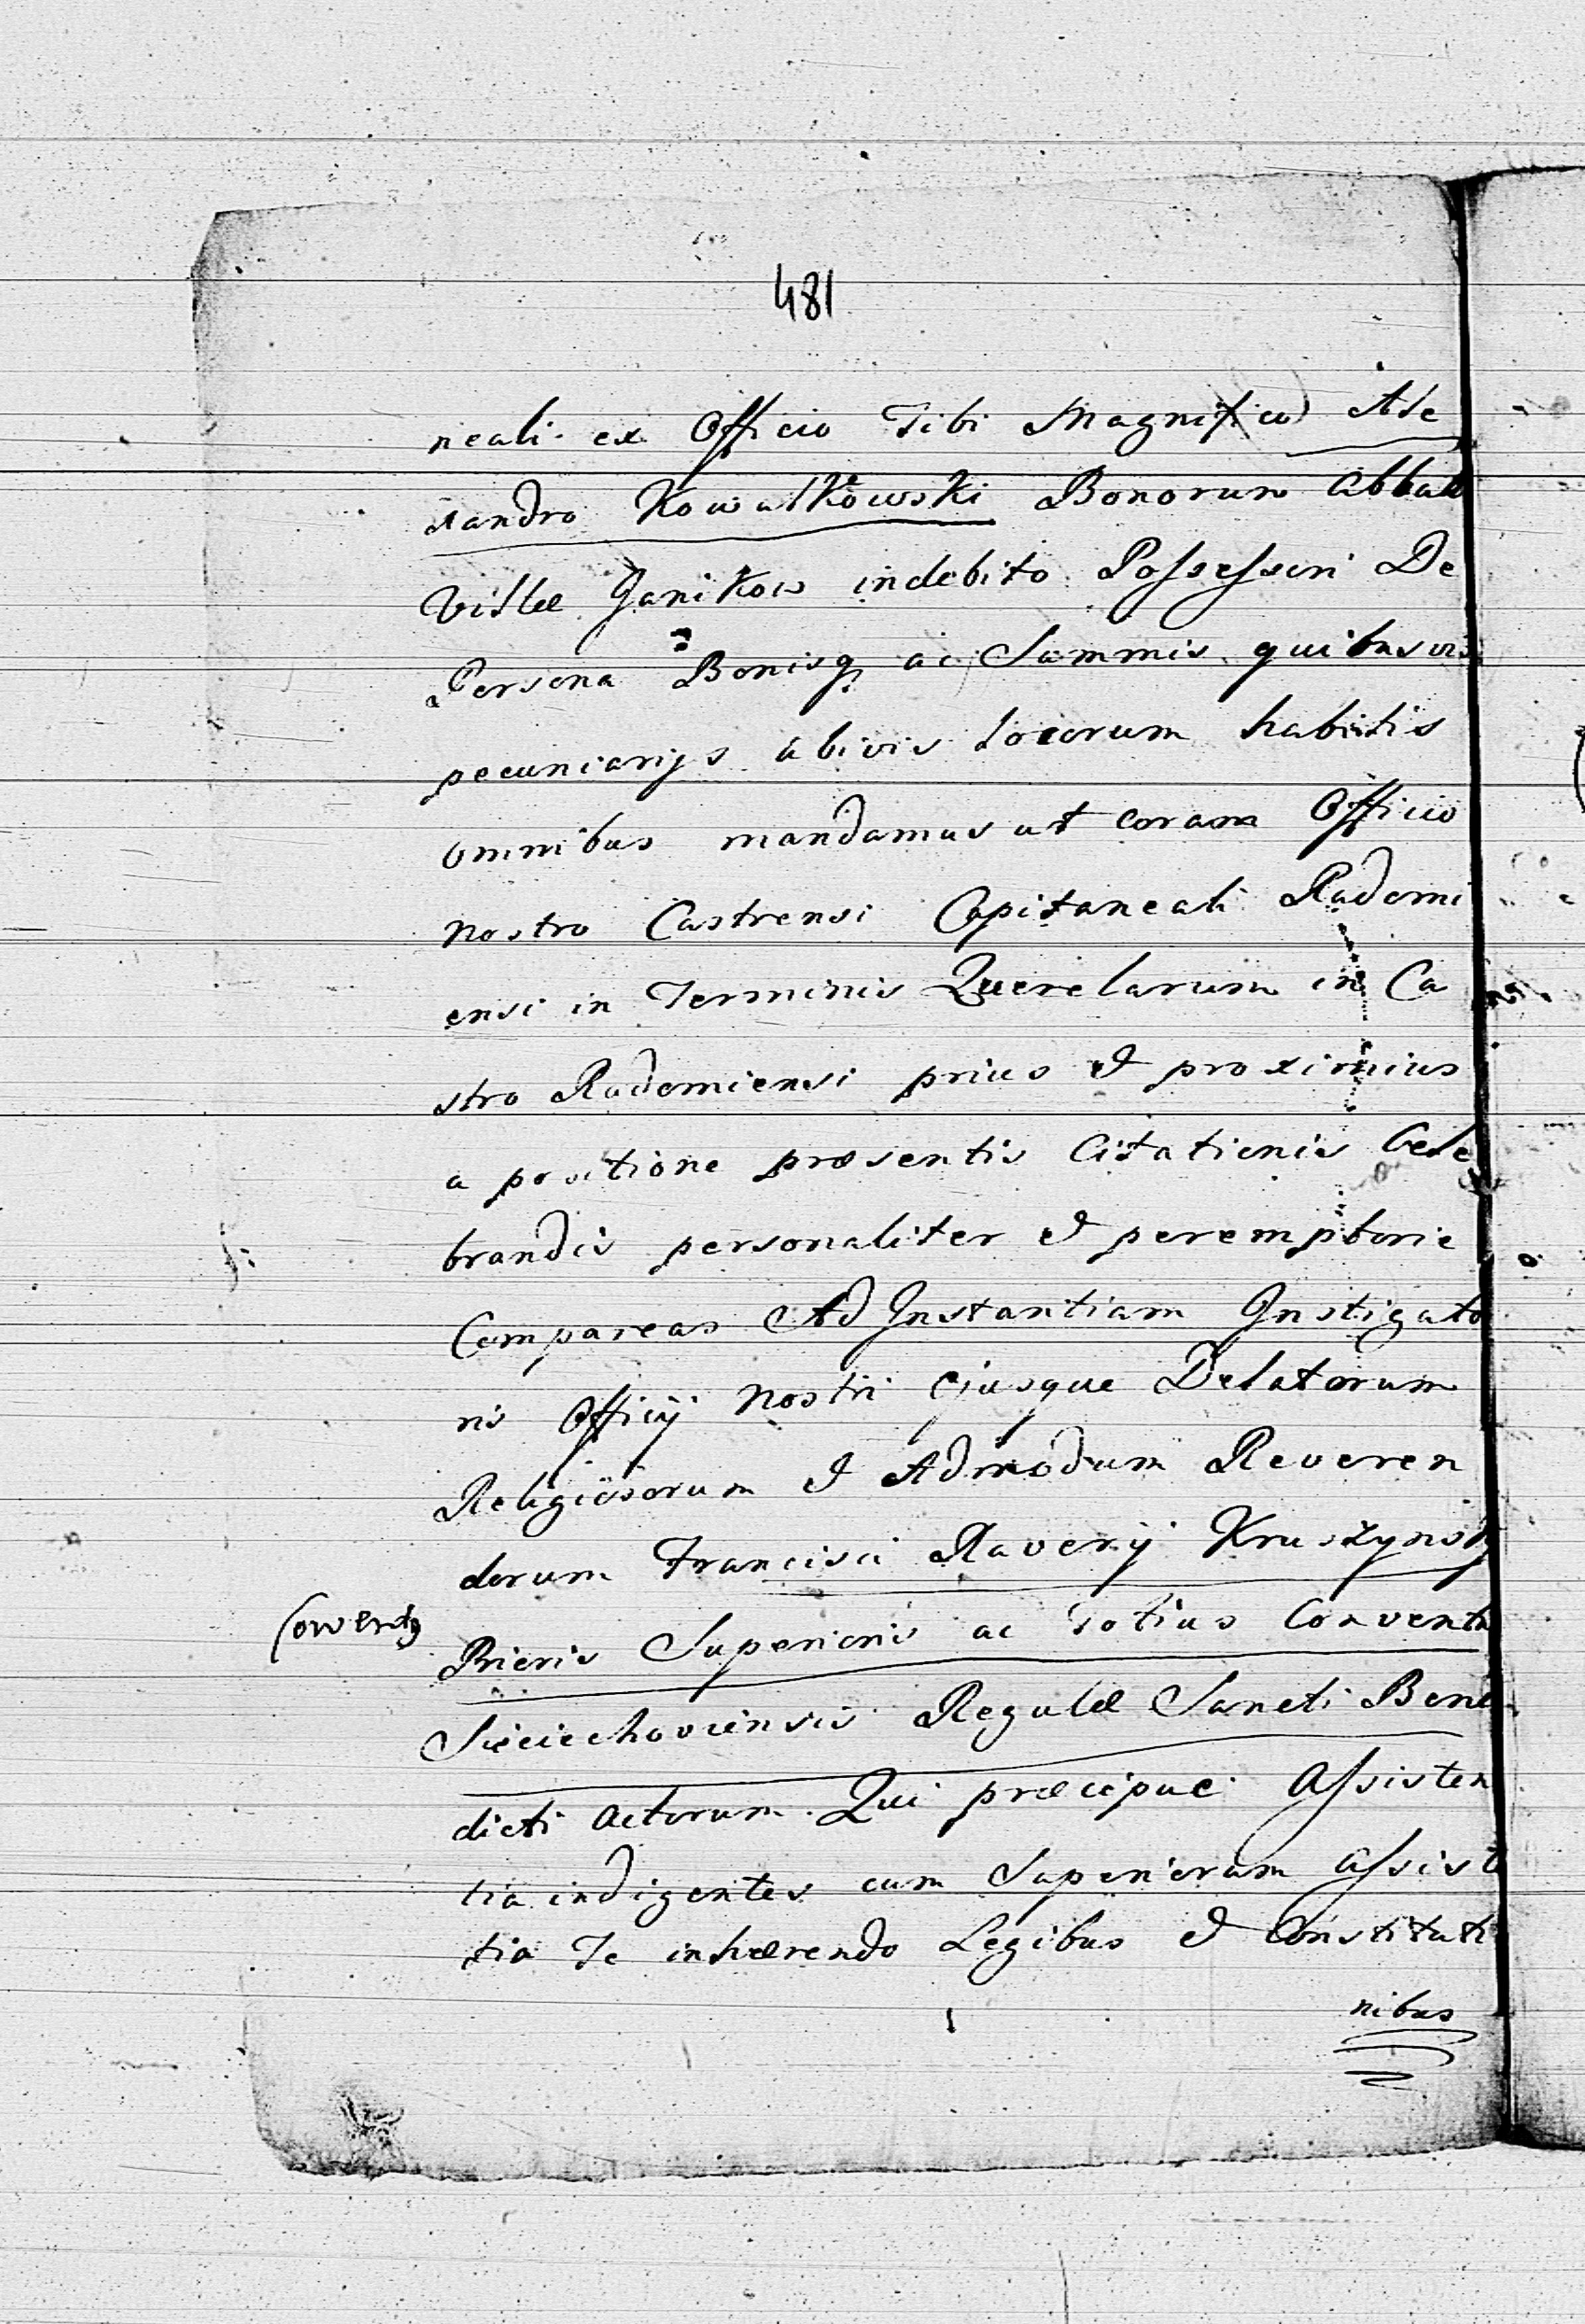 481
neali ex Officio Tibi Magnifico Ale
xandro Kowalkowski Bonorum Abbatt
Villæ Janikow indebito Possessori De
Persona Bonisq; ac Summis quibusvis
pecuniarijs ubivis locorum habitis
omnibus mandamus ut coram Officio
nostro Castrensi Capitaneali Radomi
ensi in Terminis Querelarum in Ca
stro Radomiensi prius et proximius
a positione præsentis Citationis Cele
brandis personaliter et peremptorie
Compareas Ad Instantiam Instigato
ris Officij nostri ejusque Delatorum
Religiosorum et Admodum Reveren
dorum Francisci Xaverij Kruszynski
Prioris Superioris ac Totius Conventu
Conventus
Sieciechoviensis Regulæ Sancti Bene
dicti Actorum Qui præcipue Assisten
tia indigentes cum Superiorum Assist
tia Te inhærendo Legibus et Constituti
nibus